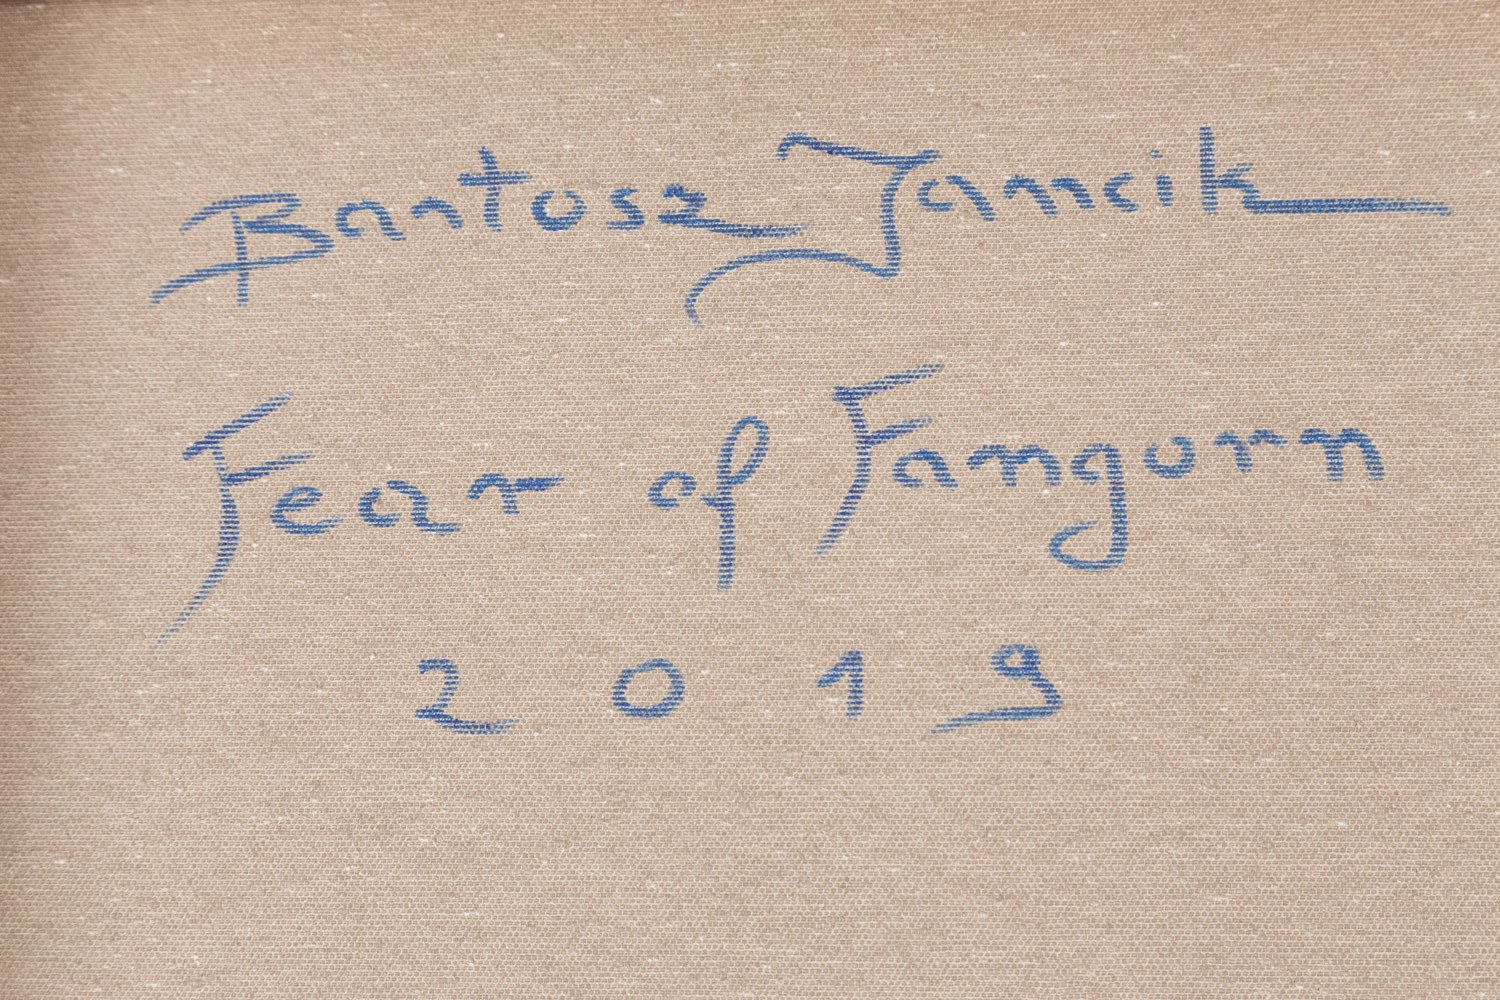 Bartosz Jancik
Fear of Fangorn
2019